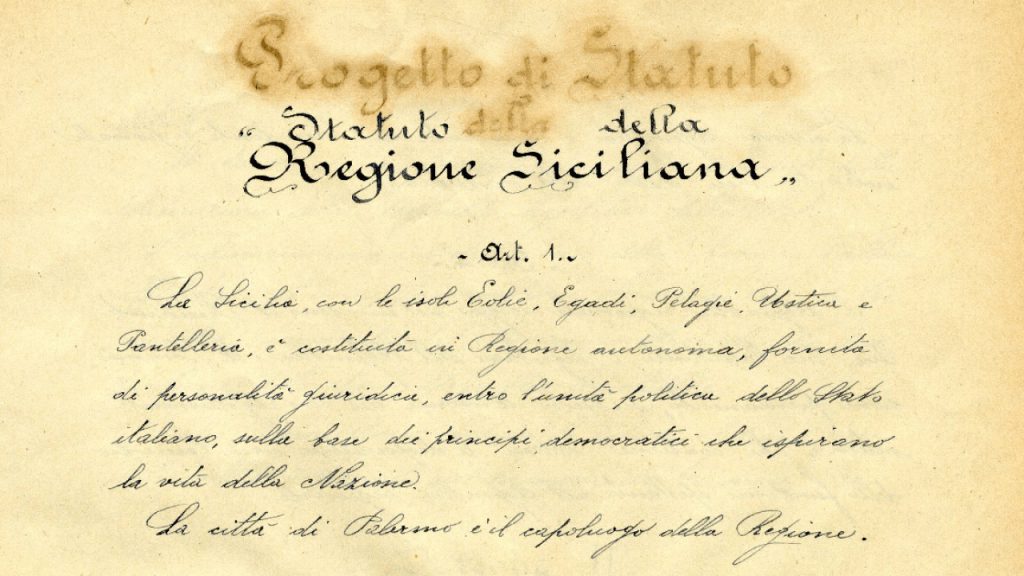 Progetto di Statuto
„ Statuto della della
Regione Siciliana „
- Art. 1. -
La Sicilia, con le isole Eolie, Egadi, Pelagie, Ustica e
Pantelleria, è costituita in Regione autonoma, fornita
di personalità giuridica, entro l'unità politica dello Stato
italiano, sulla base dei principi democratici che ispirano
la vita della Nazione.
La città di Palermo è il capoluogo della Regione.